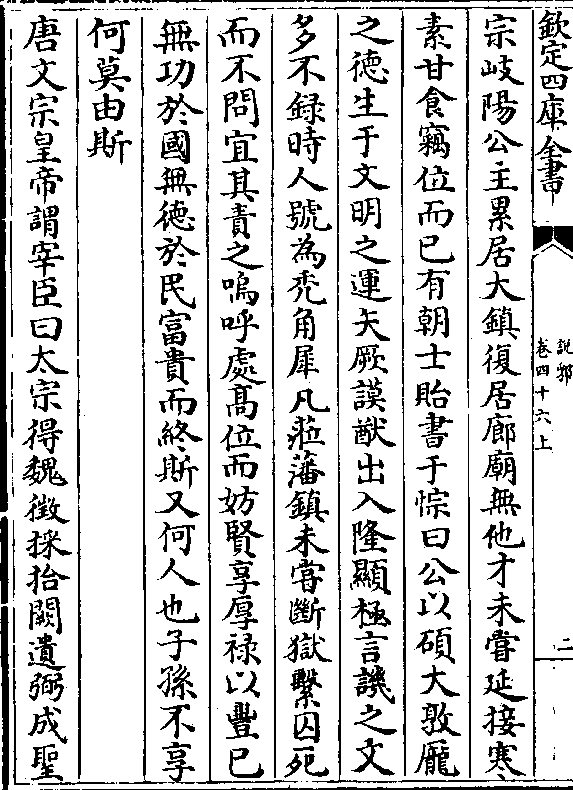 欽定四庫全書
說郛
卷四十六上
二
宗岐陽公主累居大鎮復居廊廟無他才未嘗延接寒
素甘食竊位而已有朝士貽書于悰曰公以碩大敦龎
之徳生于文明之運矢厥謨猷出入隆顯極言譏之文
多不録時人號為禿角犀凡蒞藩鎮未甞斷獄繫囚死
而不問宜其責之嗚呼處髙位而妨賢享厚禄以豐已
無功於國無徳於民富貴而終斯又何人也子孫不享
何莫由斯
唐文宗皇帝謂宰臣曰太宗得魏徴採拾闕遺弼成聖